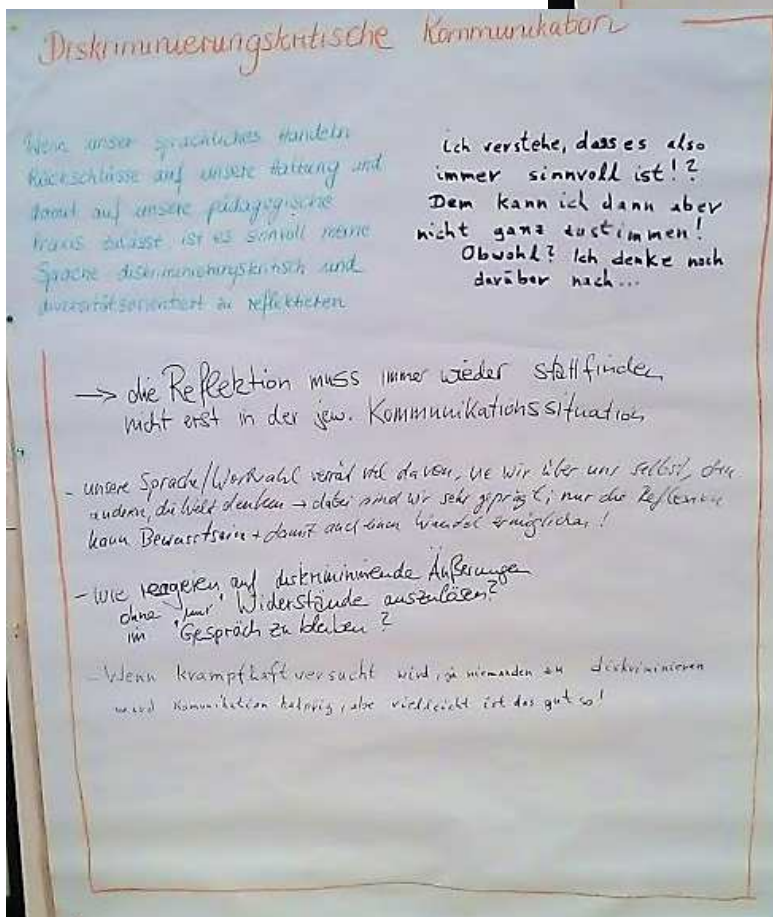 Diskriminierungskritische Kommunikation
Wenn unser sprachliches Handeln
Rückschlüsse auf unsere Haltung und
damit auf unsere pädagogische
Praxis zulässt, ist es sinnvoll meine
Sprache diskriminierungskritisch und
diversitätsorientiert zu reflektieren
ich verstehe, dass es also
immer sinnvoll ist!?
Dem kann ich dann aber
nicht ganz zustimmen!
Obwohl? Ich denke noch
darüber nach...
→ die Reflektion muss immer wieder stattfinden
nicht erst in der jew. Kommunikationssituation
- unsere Sprache/Wortwahl verrät viel davon, wie wir über uns selbst, den
andern, die Welt denken → dabei sind wir sehr geprägt; nur die Reflexion
kann Bewusstsein + damit auch einen Wandel ermöglichen!
- wie reagieren auf diskriminierende Äußerungen
ohne "nur" Widerstände auszulösen?
im Gespräch zu bleiben?
- Wenn krampfhaft versucht wird, ja niemanden zu diskriminieren
wird Komunikation holprig, aber vielleicht ist das gut so!